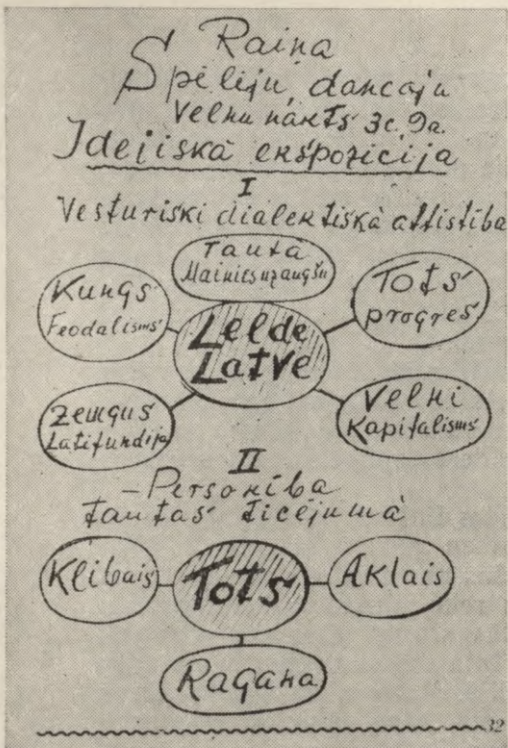 Raiņa
Spēlēju, dancāju
Velnu nakts 3c. 9a.
Idejiskā ekspozīcija
I
Vesturiski dialektiskā attīstība
Tauta
Mainies uz augšu
Kungs
Feodalisms
Tots
progres
Lelde
Latve
Zemgus
Latifundija
Velni
Kapitalisms
II
- Personība
tautas ticējumā
Klibais
Tots
Aklais
Ragana
32